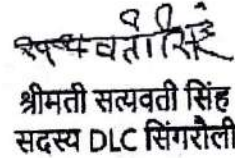 सत्यवती सिंह
श्रीमती सत्यवती सिंह
सदस्य DLC सिंगरौली